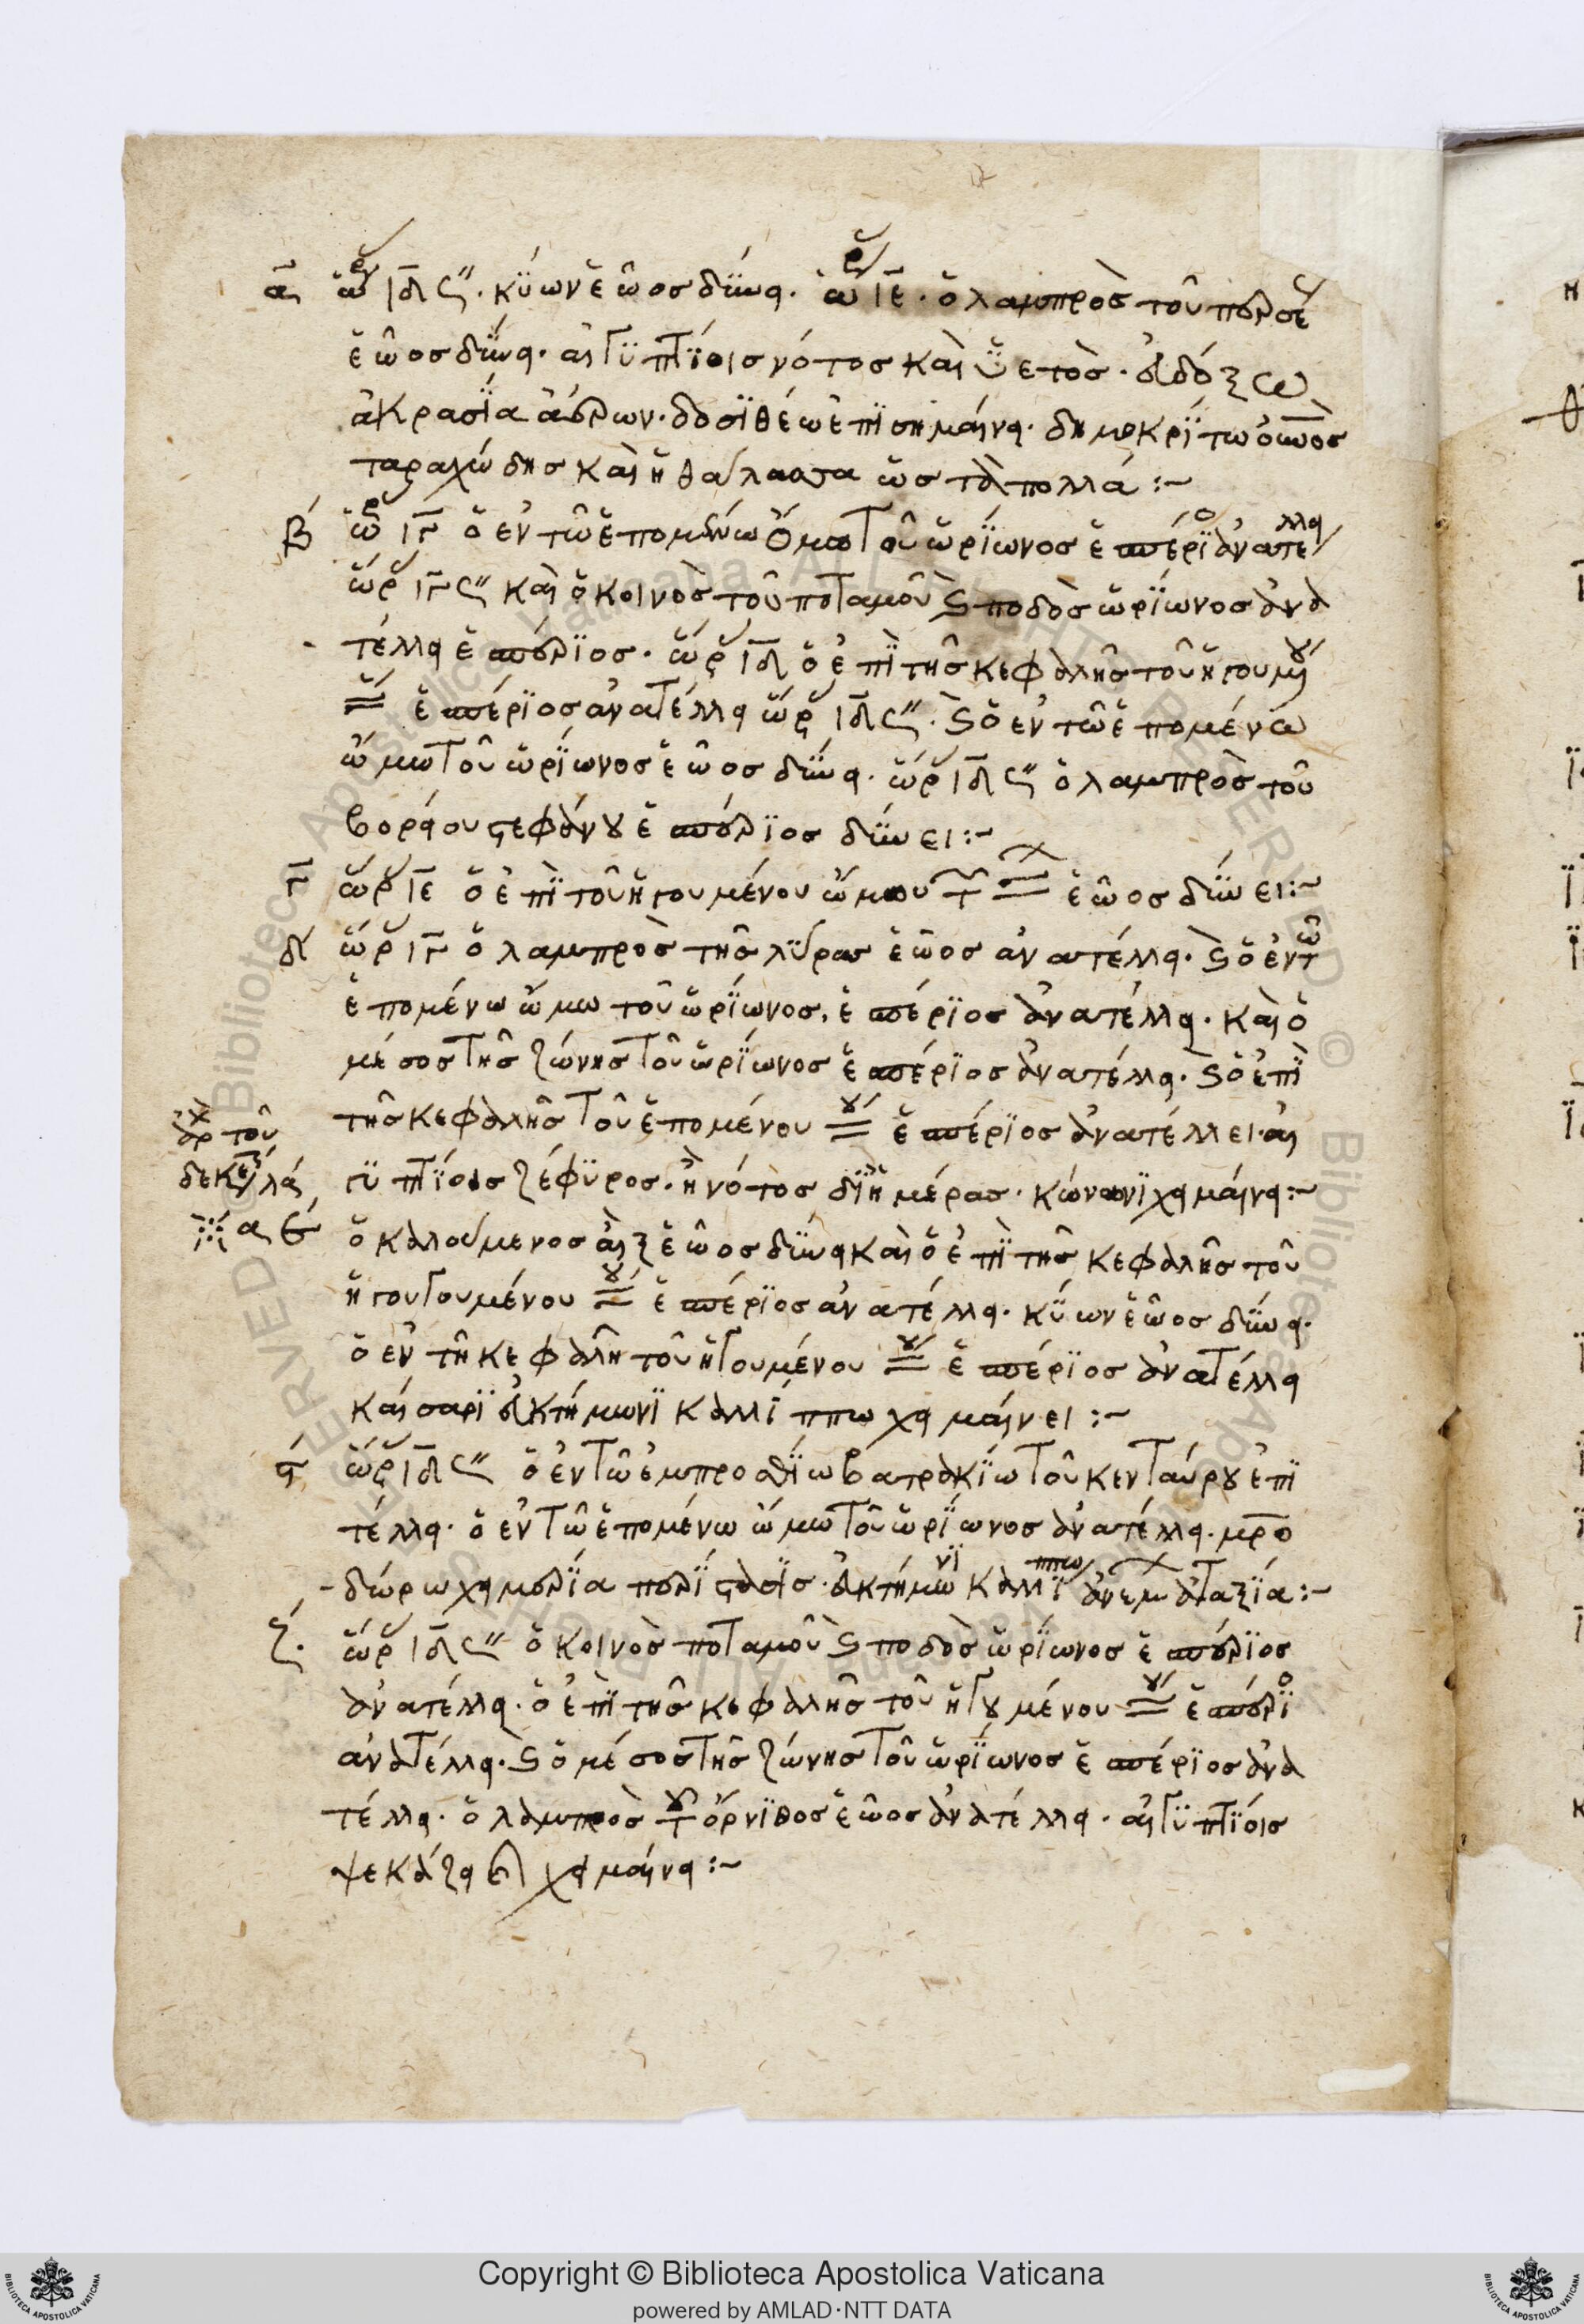 α ὥρ ιδ 𐅵. κύων ἑῶος δύνει. ὥρ ιε. ὁ λαμπρὸς τοῦ περσέ
ἑῶος δύνει. αἰγυπτίοις νότος καὶ ὑετὸς. εὐδόξω
ἀκρασία ἀέρων. δοσιθέω ἐπισημαίνει. δημοκρίτω
ταραχώδης καὶ ἡ θάλασσα ὡς τὰ πολλά :~
β ὥρ ιγ ὁ ἐν τῶ ἑπομένω ὤμω τοῦ ὠρίωνος ἑσπέριο ἀνατέλλει
ὥρ ιγ 𐅵 καὶ ὁ κοινὸς τοῦ ποταμοῦ ϛ ποδὸς ὠρίωνος ἀνα
τέλλει ἑσπέριος. ὥρ ιδ ὁ ἐπὶ τῆς κεφαλῆς τοῦ ἡγουμ
ἑσπέριος ἀνατέλλει ὥρ ιδ 𐅵. ϛ ὁ ἐν τῶ ἑπομένω
ὤμω τοῦ ὠρίωνος ἑῶος δύνει. ὥρ ιδ 𐅵 ὁ λαμπρὸς τοῦ
βορείου στεφάνου ἑσπέριος δύνει :~
γ ὥρ ιε ὁ ἐπὶ τοῦ ἡγουμένου ὤμου ἑῶος δύνει :~
δ ὥρ ιγ ὁ λαμπρὸς τῆς λύρας ἑῶος ἀνατέλλει. ϛ ὁ ἐν τῶ
ἑπομένω ὤμω τοῦ ὠρίωνος, ἑσπέριος ἀνατέλλει. καὶ ὁ
μέσος τῆς ζώνης τοῦ ὠρίωνος ἑσπέριος ἀνατέλλει. ϛ ὁ ἐπὶ
τῆς κεφαλῆς τοῦ ἑπομένου ἑσπέριος ἀνατέλλει. αἰ
γυπτίοις ζέφυρος. ἢ νότος δι' ἡμέρας. κώνωνι χειμαίνει :~
ἀρχ τοῦ
δεκε
α ε ὁ καλούμενος αἲξ ἑῶος δύνει καὶ ὁ ἐπὶ τῆς κεφαλῆς τοῦ
ἡγουγουμένου ἑσπέριος ἀνατέλλει. κύων ἑῶος δύνει.
ὁ ἐν τῆ κεφαλῆ τοῦ ἡγουμένου ἑσπέριος ἀνατέλλει
καίσαρι εὐκτήμωνι καλλίππω χειμαίνει :~
ϛ ὥρ ιδ 𐅵 ὁ ἐν τῶ ἐμπροσθίω βατραχίω τοῦ κενταύρου ἐπι
τέλλει. ὁ ἐν τῶ ἑπομένω ὤμω τοῦ ὠρίωνος ἀνατέλλει. μρο
δώρω χειμερία περίστασις. εὐκτήμωνι καλλίππω ἀνεμ ἀταξία :~
ζ. ὥρ ιδ 𐅵 ὁ κοινὸς ποταμοῦ ϛ ποδὸς ὠρίωνος ἑσπέριος
ἀνατέλλει. ὁ ἐπὶ τῆς κεφαλῆς τοῦ ἡγουμένου ἑσπέριο
ἀνατέλλει. ϛ ὁ μέσος τῆς ζώνης τοῦ ὠρίωνος ἑσπέριος ἀνα
τέλλει. ὁ λαμπρὸς τοῦ ὄρνιθος ἑῶος ἀνατέλλει. αἰγυπτίοις
ψεκάζει χειμαίνει :~
Copyright © Biblioteca Apostolica Vaticana
powered by AMLAD·NTT DATA